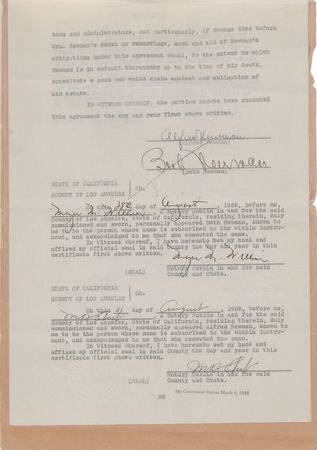 tors and administrators, and particularly, if Newman dies before
Mrs. Newman's death or remarriage, each and all of Newman's
obligations under this agreement shall, to the extent to which
Newman is in default thereunder up to the time of his death,
constitute a good and valid claim against and obligation of
his estate.
IN WITNESS WHEREOF, the parties hereto have executed
this agreement the day and year first above written.
Alfred Newman
(Alfred Newman)
Beth Newman
(Beth Newman)
STATE OF CALIFORNIA
COUNTY OF LOS ANGELES
SS:
On this day of August 1939, before me,
a Notary Public in and for the said
County of Los Angeles, State of California, residing therein, duly
commissioned and sworn, personally appeared Beth Newman, known to
me to be the person whose name is subscribed to the within instru-
ment, and acknowledged to me that she executed the same.
In Witness Whereof, I have hereunto set my hand and
affixed my official seal in said County the day and year in this
certificate first above written.
(SEAL)
Notary Public in and for said
County and State.
STATE OF CALIFORNIA
COUNTY OF LOS ANGELES
SS:
On this day of August 1939, before me,
a Notary Public in and for the said
County of Los Angeles, State of California, residing therein, duly
commissioned and sworn, personally appeared Alfred Newman, known to
me to be the person whose name is subscribed to the within instru-
ment, and acknowledged to me that he executed the same.
In Witness Whereof, I have hereunto set my hand and
affixed my official seal in said County the day and year in this
certificate first above written.
(SEAL)
Notary Public in and for said
County and State.
My Commission Expires March 8,